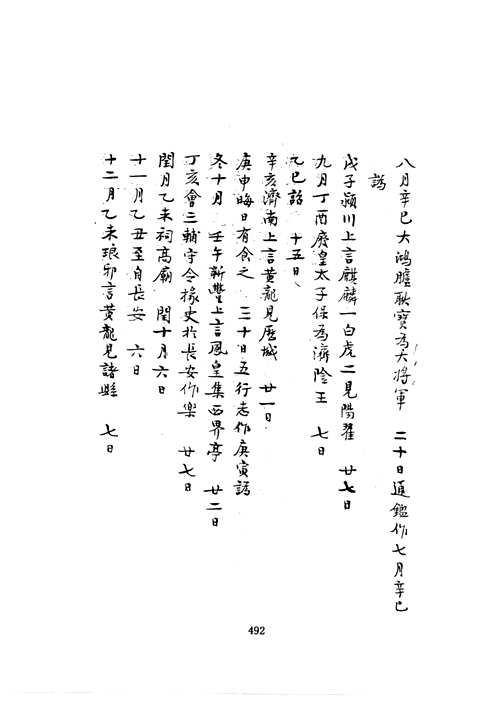 八月辛巳大鴻臚耿寶爲大將軍　二十日通鑑作七月辛巳
誤
戊子潁川上言麒麟一白虎二見陽翟　廿七日
九月丁酉廢皇太子保爲濟陰王　七日
乙巳詔　十五日
辛亥濟南上言黃龍見歷城　廿一日
庚申晦日有食之　三十日五行志作庚寅誤
冬十月　壬午新豐上言鳳皇集西界亭　廿二日
丁亥會三輔守令掾史於長安作樂　廿七日
閏月乙未祠高廟　閏十月六日
十一月乙丑至自長安　六日
十二月乙未琅邪言黃龍見諸縣　七日
492